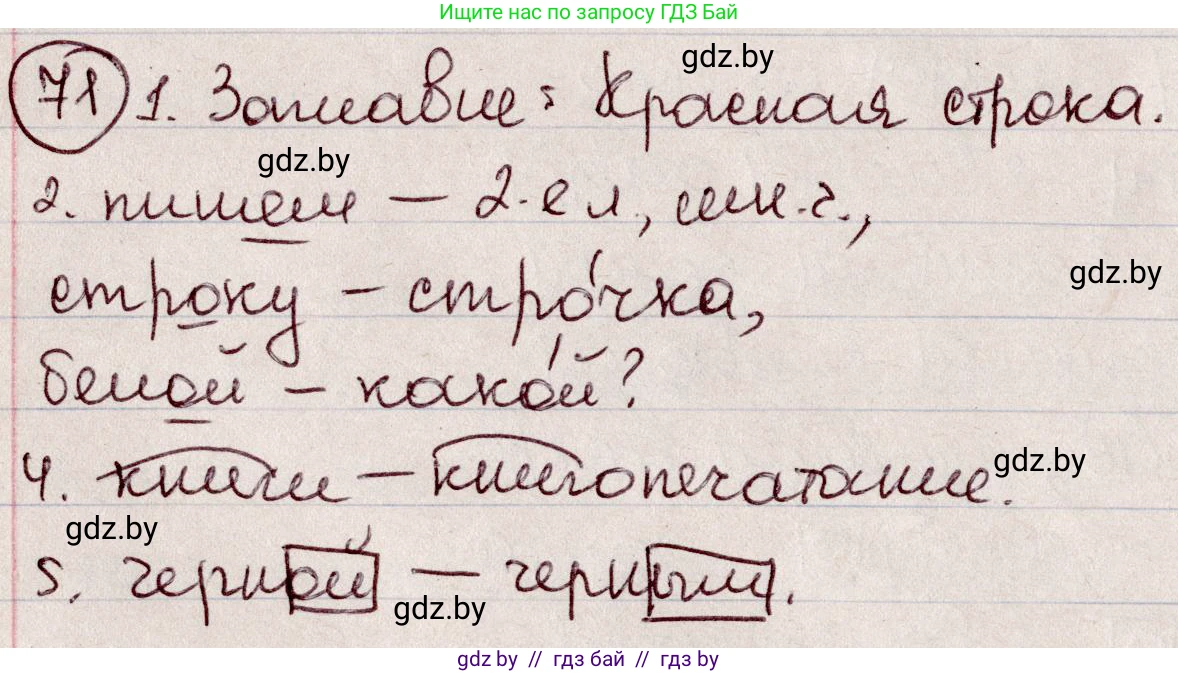 Ищите нас по запросу ГДЗ Бай
gdz.by
71 1. Заглавие: Красная строка.
gdz.by
2. пишем — 2-е л., мн.ч.,
gdz.by
строку – строчка,
белой – какой?
4. книги – книгопечатание.
gdz.by
gdz.by
5. черной — черным.
gdz.by
gdz by // гдз бай // гдз by